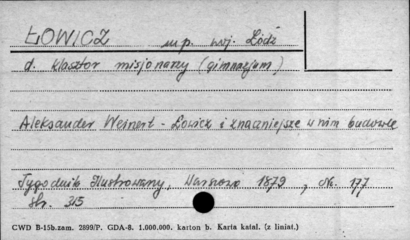 ŁOWICZ m.p. woj. Łódź
d. klasztor misjonarzy (gimnazjum)
Aleksander Weinert - Łowicz i znaczniejsze w nim budowle
Tygodnik Ilustrowany, Warszawa 1879, Nr. 177
str. 315
CWD B-15b.zam. 2899/P. GDA-8. 1.000.000. karton b. Karta katal. (z liniat.)